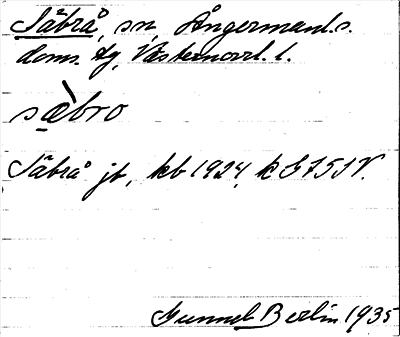 Säbrå, sn, Ångermanl. s.
doms. tg, Västernorrl. l.
sæ̀bro
Säbrå jb, kb 1924, k G 751 V.
Gunnel Berlin 1935